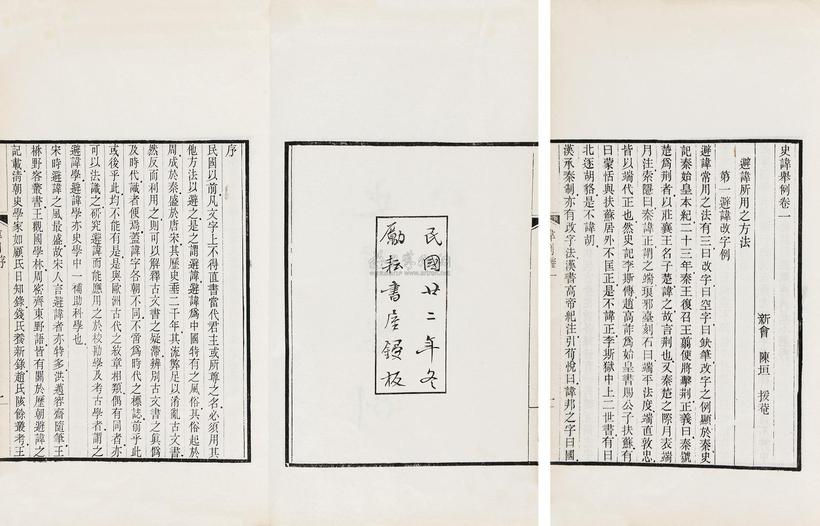 史諱舉例卷一
新會　陳垣　援菴
避諱所用之方法
第一避諱改字例
避諱常用之法有三曰改字曰空字曰缺筆改字之例顯於秦史
記秦始皇本紀二十三年秦王復召王翦使將擊荆正義曰秦號
楚爲荆者以莊襄王名子楚諱之故言荆也又秦楚之際月表端
月注索隱曰秦諱正謂之端琅邪臺刻石曰端平法度端直敦忠
皆以端代正也然史記李斯傳趙高詐爲始皇書賜公子扶蘇有
曰蒙恬與扶蘇居外不匡正是不諱正李斯獄中上二世書有曰
北逐胡貉是不諱胡
漢承秦制亦有改字法漢書高帝紀注引荀悅曰諱邦之字曰國
民國廿二年冬
勵耘書屋鋟板
序
民國以前凡文字上不得直書當代君主或所尊之名必須用其
他方法以避之是之謂避諱避諱爲中國特有之風俗其俗起於
周成於秦盛於唐宋其歷史垂二千年其流弊足以淆亂古文書
然反而利用之則可以解釋古文書之疑滯辨別古文書之眞僞
及時代識者便焉蓋諱字各朝不同不啻爲時代之標誌前乎此
或後乎此均不能有是是與歐洲古代之紋章相類偶有同者亦
可以法識之研究避諱而能應用之於校勘學及考古學者謂之
避諱學避諱學亦史學中一補助科學也
宋時避諱之風最盛故宋人言避諱者亦特多洪邁容齋隨筆王
楙野客叢書王觀國學林周密齊東野語皆有關於歷朝避諱之
記載清朝史學家如顧氏日知錄錢氏養新錄趙氏陔餘叢考王